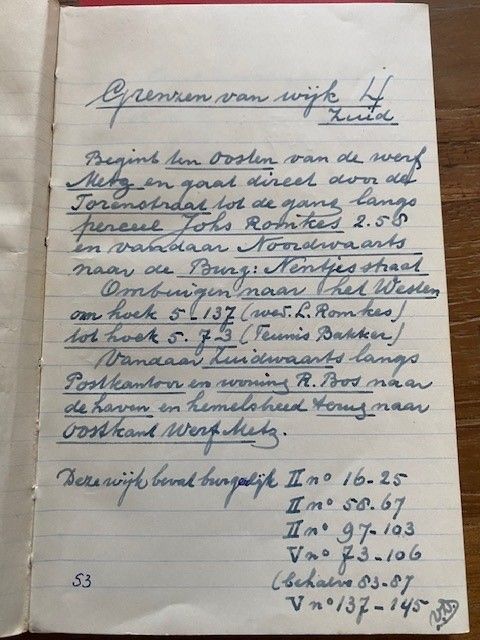 Grenzen van wijk 4
Zuid
Begint ten oosten van de werf
Metz en gaat direct door de
Torenstraat tot de gang langs
perceel Johs Romkes 2.58
en vandaar Noordwaarts
naar de Burg: Nentjesstraat
Ombuigen naar het Westen
om hoek 5-137 (wed. L. Romkes)
tot hoek 5.73 (Teunis Bakker)
Vandaar Zuidwaarts langs
Postkantoor en woning R. Bos naar
de haven en hemelsbreed terug naar
oostkant Werf Metz.
Deze wijk bevat burgelijk II no 16-25
II no 58-67
II no 97-103
V no 73-106
53 (behalve 83-87
V no 137-145